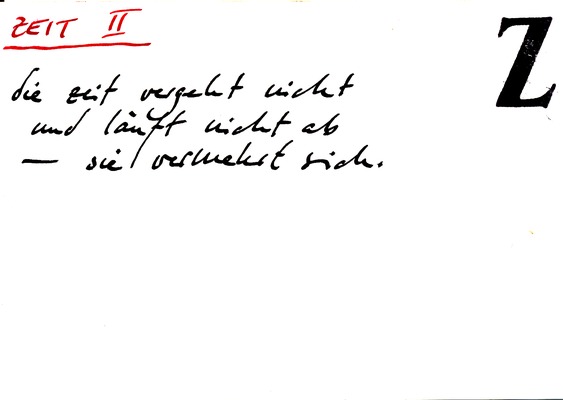 ZEIT II
Z
die zeit vergeht nicht
und läuft nicht ab
— sie vermehrt sich.